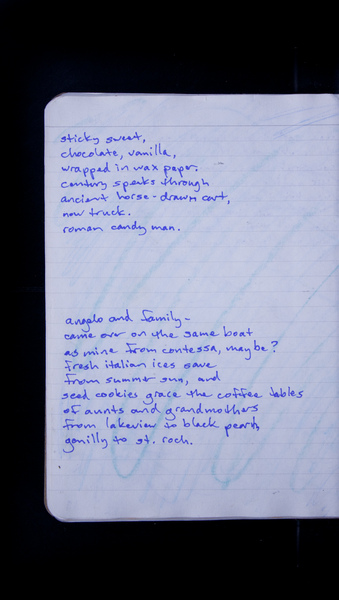 sticky sweet,
chocolate, vanilla,
wrapped in wax paper.
century speaks through
ancient horse-drawn cart,
now truck.
roman candy man.
angelo and family-
came over on the same boat
as mine from contessa, maybe?
fresh italian ices save
from summer sun, and
seed cookies grace the coffee tables
of aunts and grandmothers
from lakeview to black pearl,
gentilly to st. roch.